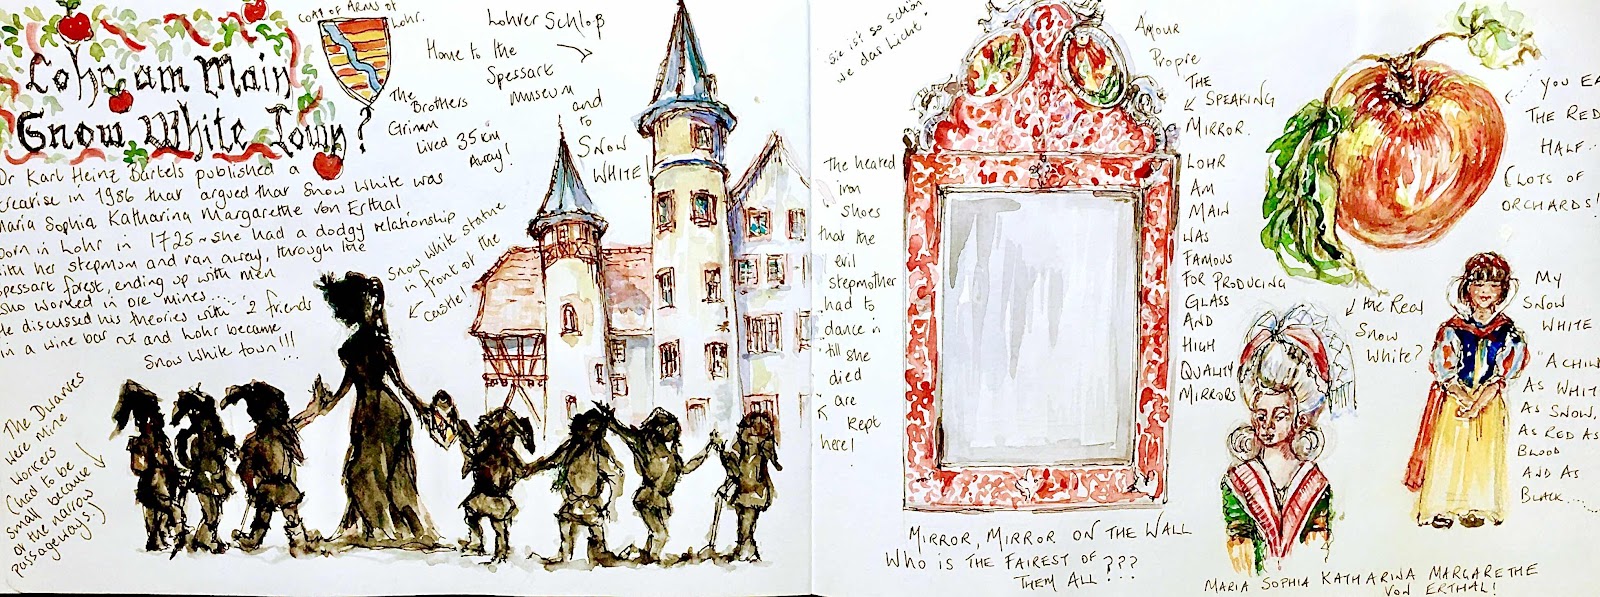 Lohr am Main
Snow White Town?
COAT OF ARMS OF
Lohr.
The
Brothers
Grimm
lived 35 km
Away!
Dr Karl Heinz Bartels published a
treatise in 1986 that argued that Snow White was
Maria Sophia Katharina Margarethe von Erthal
born in Lohr in 1725 ~ she had a dodgy relationship
with her stepmom and ran away, through the
Spessart forest, ending up with men
who worked in ore mines.....
He discussed his theories with '2 friends
in a wine bar and Lohr became
Snow White town!!!
Lohrer Schloß
Home to the
Spessart
museum
and
to
SNOW
WHITE!
Snow White statue
in front of the
castle!
The Dwarves
were mine
workers
(had to be
small because
of the narrow
passageways.)
Sie ist so schön
we das Licht.
The heated
iron
shoes
that the
evil
stepmother
had to
dance in
till she
died
are
kept
here!
Amour
Propre
THE
SPEAKING
MIRROR.
LOHR
AM
MAIN
WAS
FAMOUS
FOR PRODUCING
GLASS
AND
HIGH
QUALITY
MIRRORS
MIRROR, MIRROR ON THE WALL
WHO IS THE FAIREST OF
THEM ALL???
YOU EA
THE RED
HALF...
(LOTS OF
ORCHARDS!
the Real
Snow
White?
MARIA SOPHIA KATHARINA MARGARETHE
VON ERTHAL!
MY
SNOW
WHITE
"A CHILD
AS WHITE
AS SNOW,
AS RED AS
BLOOD
AND AS
BLACK....